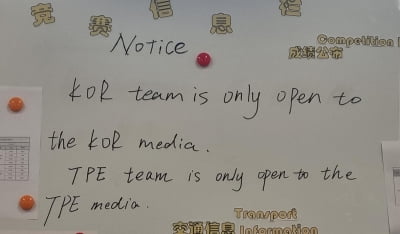 竞赛信息栏
Notice
Competition
成绩公布
KOR team is only open to
the KOR media.
TPE team is only open to the
TPE media.
交通信息 Transport
Information